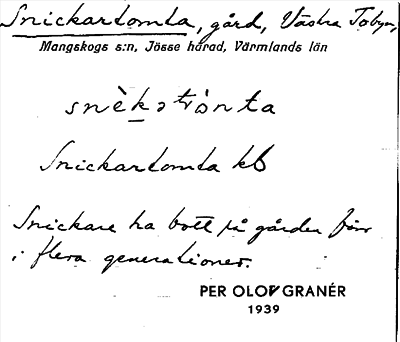 Snickartomta, gård, Västra Tobyn,
Mangskogs s:n, Jösse härad, Värmlands län
snèkətrònta
Snickartomta kb
Snickare ha bott på gården förr
i flera generationer.
PER OLOF GRANÉR
1939